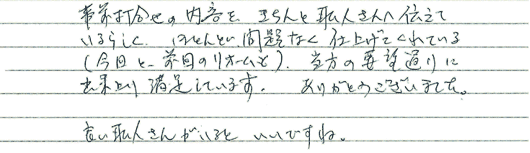 事前打合せの内容を、きちんと職人さんへ伝えて
いるらしく、ほとんど問題なく仕上げてくれている
(今回と、前回のリホームと)。当方の要望通りに
出来上り満足しています。ありがとうございました。
良い職人さんがいると いいですね。